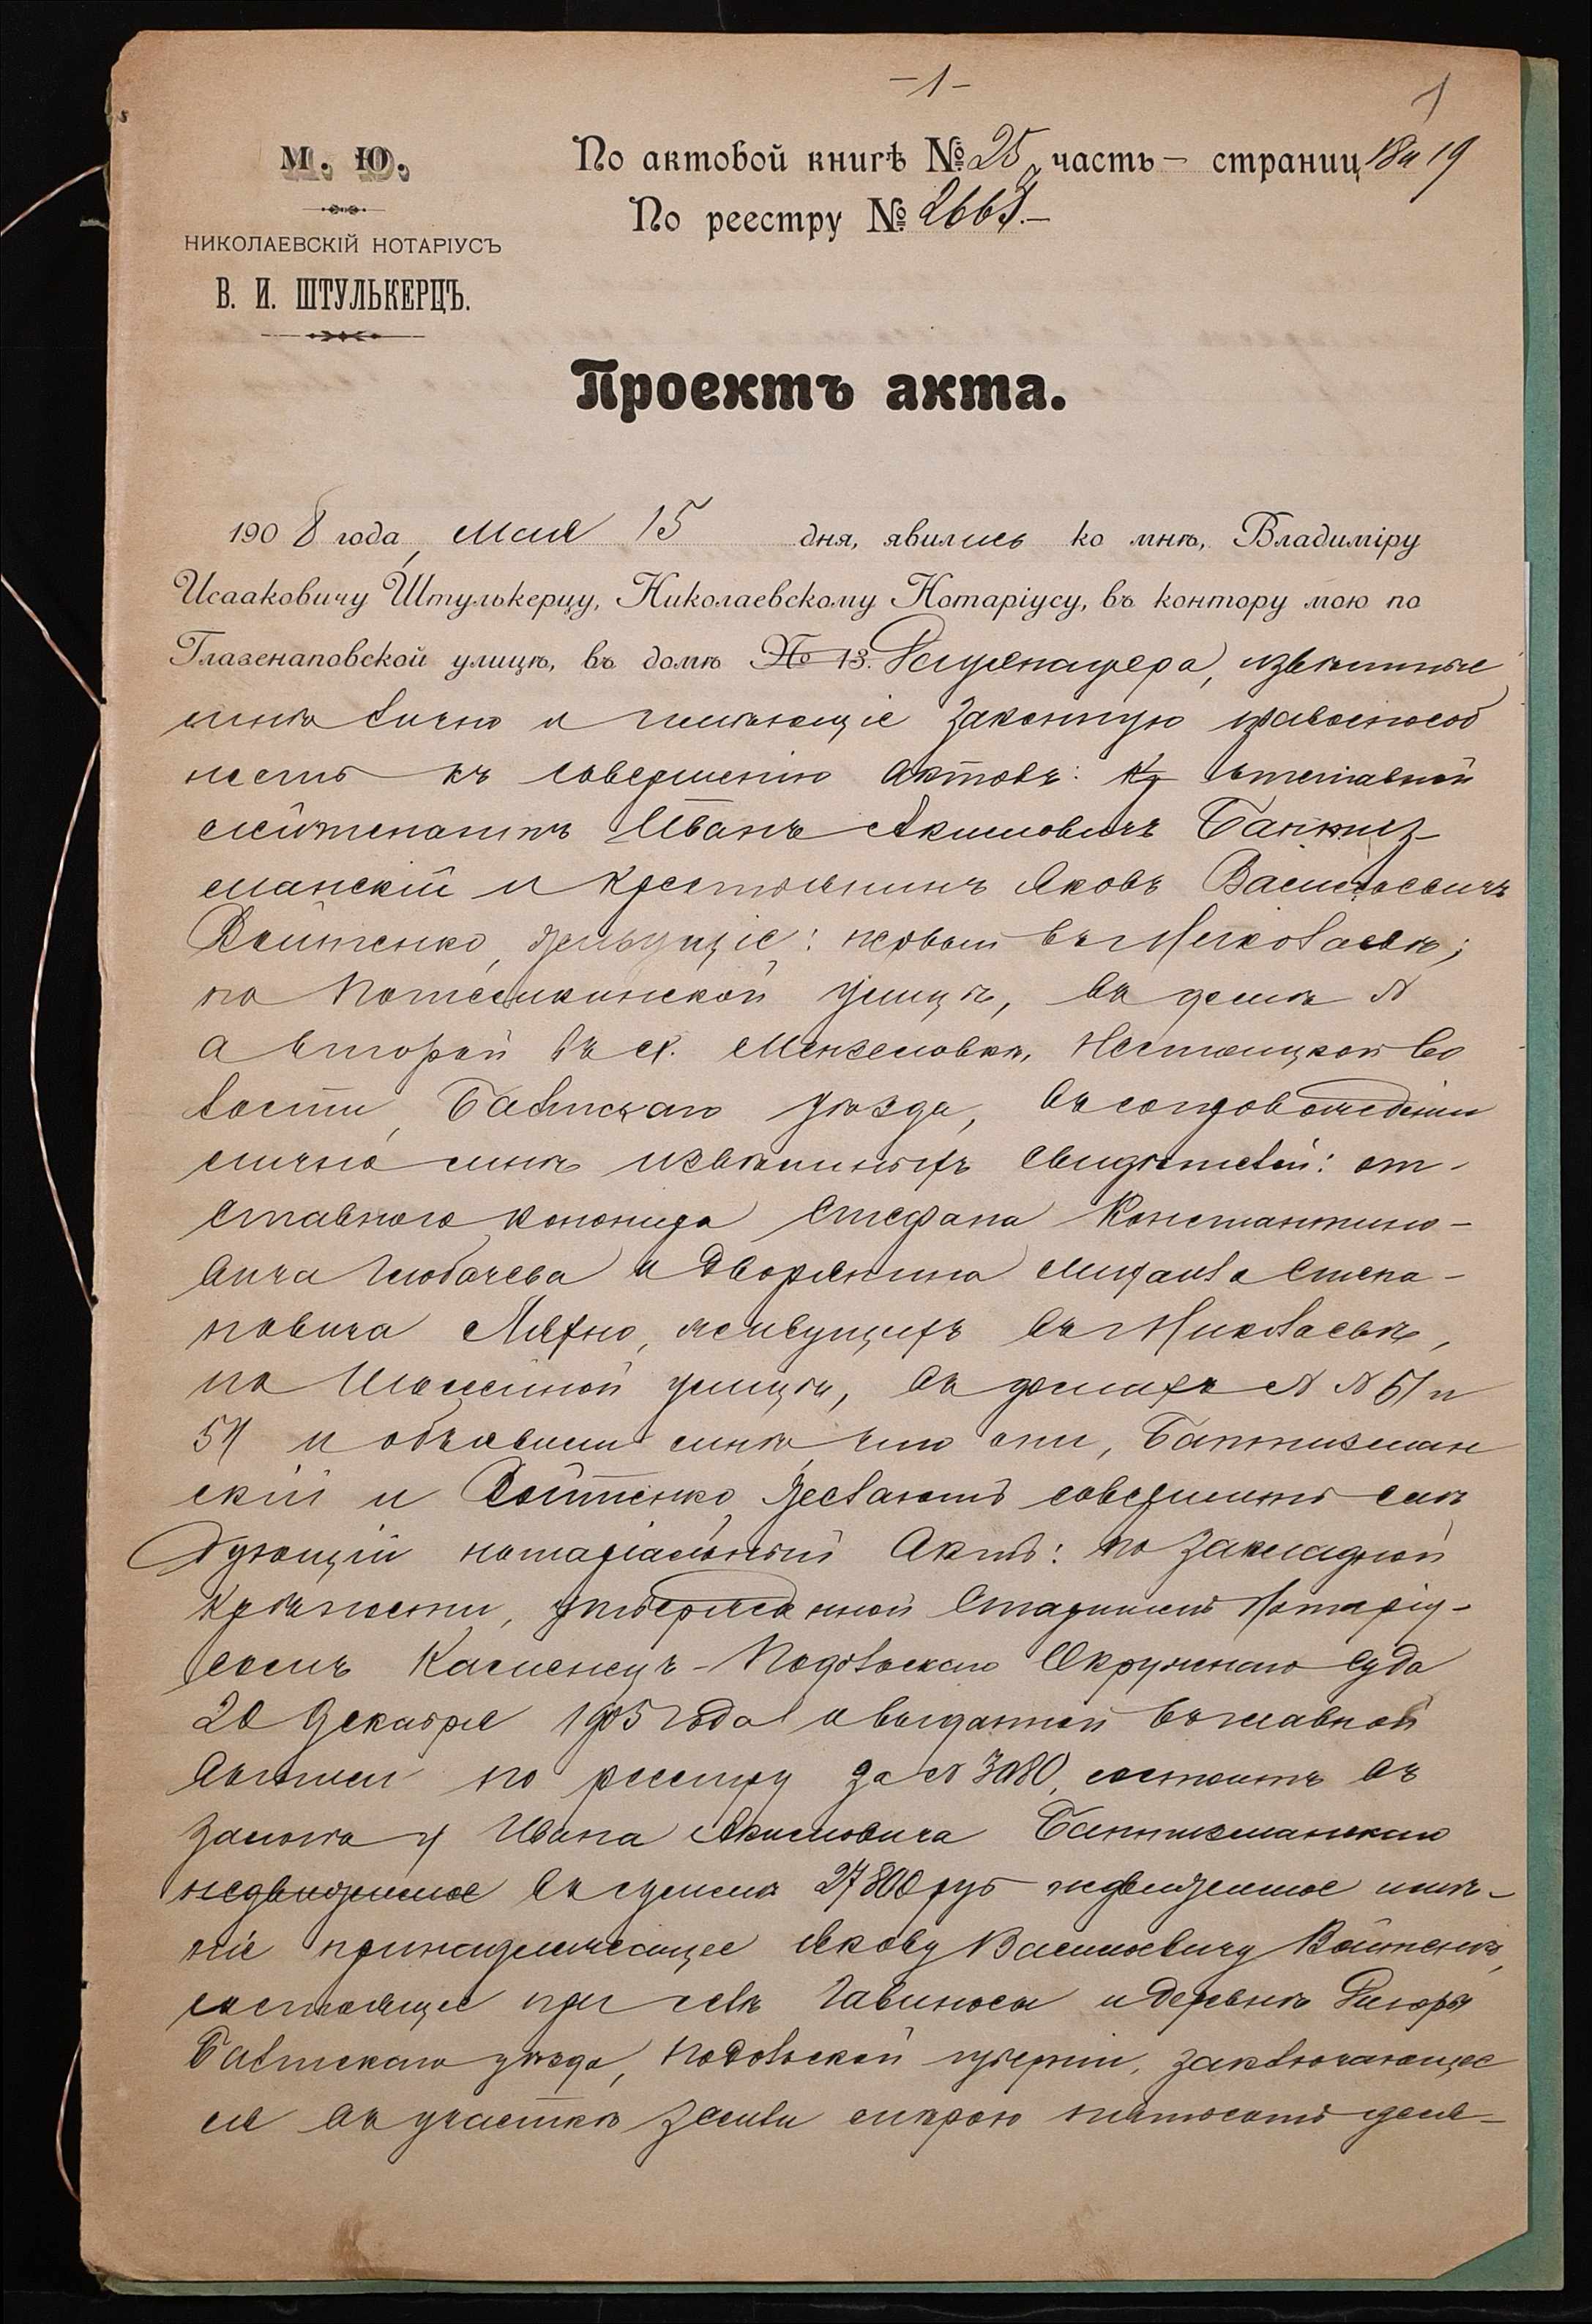 -1-
1
М. Ю.
По актовой книгѣ № 25, часть - страниц 18 и 19
По реестру № 2663.-
НИКОЛАЕВСКІЙ НОТАРІУСЪ
В. И. ШТУЛЬКЕРЦЪ.
Проектъ акта.
1908 года, Мая 15 дня, явились ко мнѣ, Владиміру
Исааковичу Штулькерцу, Николаевскому Нотаріусу, въ контору мою по
Глазенаповской улицѣ, въ домѣ № 13. извѣстные
мнѣ лично и имѣющіе законную правоспособ
ность къ совершенію актовъ: отставной
лейтенантъ Иванъ Акимовичъ Бантыз-
манскій и крестьянинъ Яковъ Васильевичъ
Войтенко, живущіе: первый въ г. Николаевѣ,
на Потемкинской улицѣ, въ домѣ №
а второй въ с. вo
лости, Балтскаго уѣзда, въ сопровожденіи
лично мнѣ извѣстныхъ свидѣтелей: от-
ставного Стефана Константино-
вича Глобачева и Дворянина Михаила Степа-
новича Ляхно, живущихъ въ г. Николаевѣ,
на улицѣ, въ домахъ № № 51 и
54 и объявили мнѣ, что они, Бантызман
скій и Войтенко, желаютъ совершить слѣ
дующій нотаріальный актъ: по закладной
крѣпости, утвержденной Старшимъ Нотаріу-
сомъ Каменецъ-Подольскаго Окружнаго Суда
20 Декабря 1905 года и выданной въ главной
выписи по реестру за № 3080, состоитъ въ
залогѣ у Ивана Акимовича Бантызманскаго
недвижимое въ суммѣ 27800 руб недвижимое имѣ-
ніе принадлежащее Якову Васильевичу Войтенкѣ,
состоящее при селѣ Гавиносы и деревнѣ
Балтскаго уѣзда, Подольской губерніи, заключающее
ся въ участкѣ земли мѣрою пятьсотъ деся-